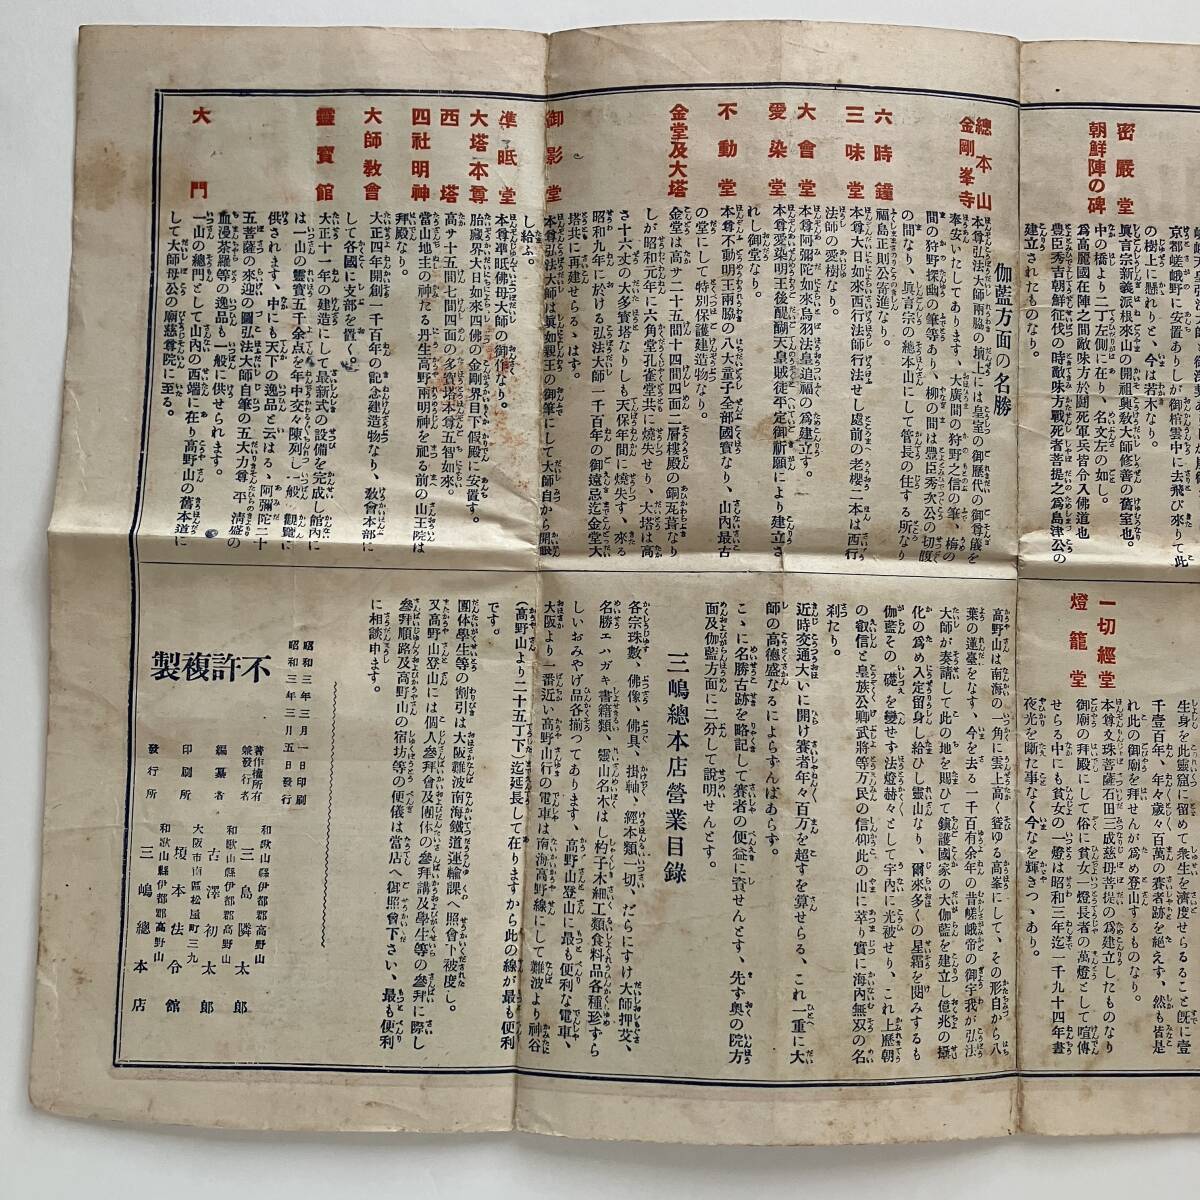 密嚴堂
朝鮮陣の碑
京都嵯峨野に安置ありしが御棺雲中に去飛び來りて此
の樹上に懸れりと、今は若木なり。
眞言宗新義派根來山の開祖興敎大師修善の舊室也。
中の橋より二丁左側に在り、名文左の如し。
爲高麗國在陣之間敵味方於鬪死軍兵皆令入佛道也
豊臣秀吉朝鮮征伐の時敵味方戰死者菩提之爲島津公の
建立されたものなり。
伽藍方面の名勝
總本山
金剛峯寺
本尊弘法大師兩脇の壇上には皇室の御歷代の御尊儀を
奉安いたしてあります、大廣間の狩野之信の筆、梅の
間の狩野探幽の筆等あり、柳の間は豊臣秀次公の切腹
の間なり、眞言宗の總本山にして管長の住する所なり
六時鐘
福島正則公寄進なり。
三味堂
本尊大日如來西行法師行法せし處前の老櫻二本は西行
法師の愛樹なり。
大會堂
本尊阿彌陀如來鳥羽法皇追福の爲建立す。
愛染堂
本尊愛染明王後醍醐天皇賊徒平定御祈願により建立さ
れし御堂なり。
不動堂
本尊不動明王兩脇の八大童子全部國寶なり、山內最古
の堂にして特別保護建造なり。
金堂及大塔
金堂は高サ二十五間十四間四面二層樓殿の銅瓦葺なり
しが昭和元年に六角堂孔雀堂共に燒失せり、大塔は高
さ十六丈の大多寶塔なりしも天保年間に燒失す、來る
昭和九年に於ける弘法大師一千百年の御遠忌迄金堂大
塔共に再建せらるゝはす。
御影堂
本尊弘法大師は眞如親王の御筆にして大師自から開眼
し給ふ。
準眠堂
本尊準眠佛母大師の御作なり。
大塔本尊
胎藏界大日如來四佛の金剛界目下假殿に安置す。
西塔
高サ十五間七間四面の多寶塔本尊五智如來。
四社明神
當山地主の神たる丹生高野兩明神を祀る前の山王院は
拜殿なり。
大師敎會
大正四年開創一千百年の記念建造物なり、敎會本部に
して各國に支部を置く。
靈寶館
大正十一年の建造にして最新式の設備を完成し館內に
は一山の靈寶五千余点を年中交々陳列し一般、觀覽に
供されます、中にも天下の逸品と云はる、阿彌陀二十
五菩薩の來迎の圖弘法大師自筆の五大力尊、平淸盛の
血漫茶羅等の逸品も一般に供せられます。
大門
一山の總門として山內の西端に在り高野山の舊本道に
して大師母公の廟慈尊院に至る。
一切經堂
燈籠堂
生身を此靈窟に留めて衆生を濟度せらるること既に壹
千壹百年、年々歲々百萬の賽者跡を絶えず、然も皆是
れ此の御廟を拜せんが爲め登山するものなり。
本尊文珠菩薩石田三成慈母菩提の爲建立したものなり
御廟の拜殿にして俗に貧女一燈長者の萬燈として喧傳
せらる中にも貧女の一燈は昭和三年迄一千九十四年晝
夜光を斷た事なく今なを輝きつゝあり。
高野山は南海の一角に雲上高く聳ゆる高峯にして、その形自から八
葉の蓮臺をなす、今を去る一千百有余年の昔嵯峨帝の御宇我が弘法
大師が奏請して此の地を賜ひて鎭護國家の大伽藍を建立し億兆の攝
化の爲め入定留身し給ひし靈山なり、爾來多くの星霜を閱みするも
伽藍その礎を變せず法燈赫々として宇內に光被せり、これ上歷朝
の叡信と皇族公卿武將等万民の信仰此の山に萃り實に海內無双の名
刹たり。
近時交通大いに開け賽者年々百万を超すを算せらる、これ一重に大
師の高德盛なるによらずんばあらず。
こゝに名勝古跡を略記して賽者の便益に資せんとす、先す奥の院方
面及伽藍方面に二分して說明せんとす。
三嶋總本店營業目錄
各宗珠數、佛像、佛具、掛軸、經本類一切、だらにすけ大師押茭、
名勝エハガキ書籍類、靈山名木はし杓子木細工類食料品各種珍ずら
しいおみやげ品各揃つてあります、高野山登山に最も便利な電車、
大阪より一番近い高野山行の電車は南海高野線にして難波より神谷
(高野山より二十五丁下)迄延長して在りますから此の線が最も便利
です。
團体學生等の割引は大阪難波南海鐵道運輸課へ照會下被度し。
又高野山登山には個人參拜會及團体の參拜講及學生等の參拜に際し
參拜順路及高野山の宿坊等の便儀は當店へ御照會下さい、最も便利
に相談申ます。
昭和三年三月一日印刷
昭和三年三月五日發行
不許複製
著作權所有
兼發行者
和歌山縣伊都郡高野山
三島隣太郎
編纂者
和歌山縣伊都郡高野山
古澤初太郎
印刷所
大阪市南區松屋町三九
榎本法令館
發行所
和歌山縣伊都郡高野山
三嶋總本店